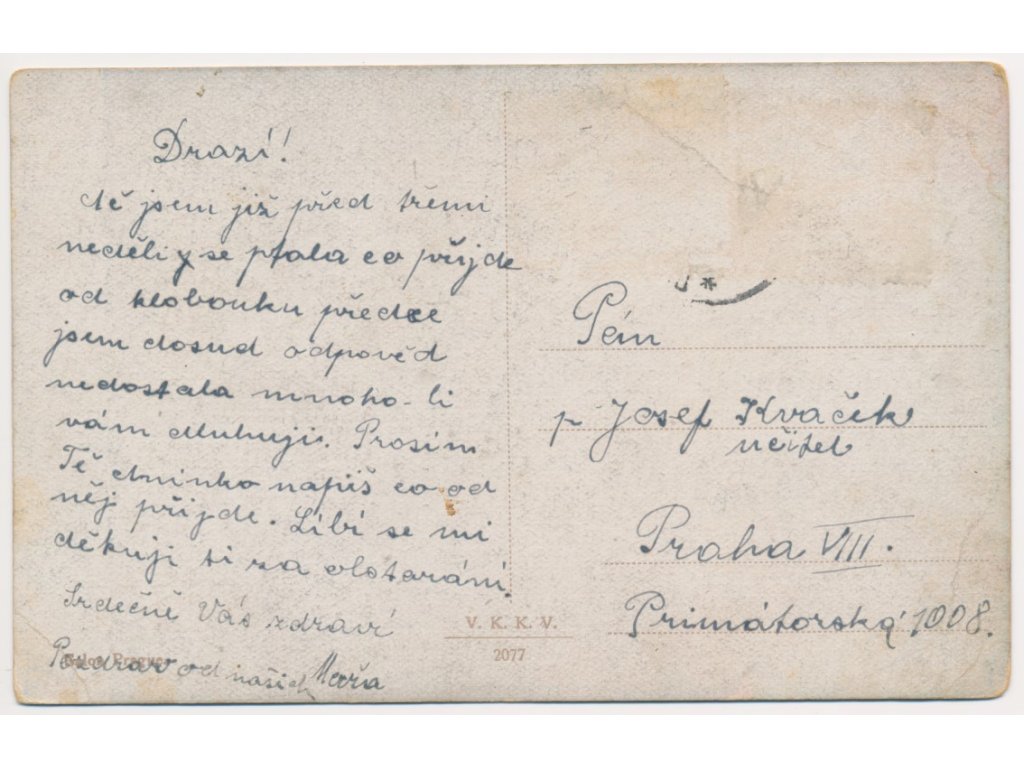 Drazí!
tě jsem již před třemi
neděli y se ptala co přijde
od klobouku předce
jsem dosud odpověd
nedostala mnoho-li
vám dluhuji. Prosím
Tě Aninko napiš co od
něj přijde. Líbí se mi
děkuji ti za obstarání.
Srdečně Vás zdraví
Pozdrav od našich Mařa
Pán
p Josef Kvaček
učitel
Praha VIII.
Primátorská 1008.
V. K. K. V.
2077